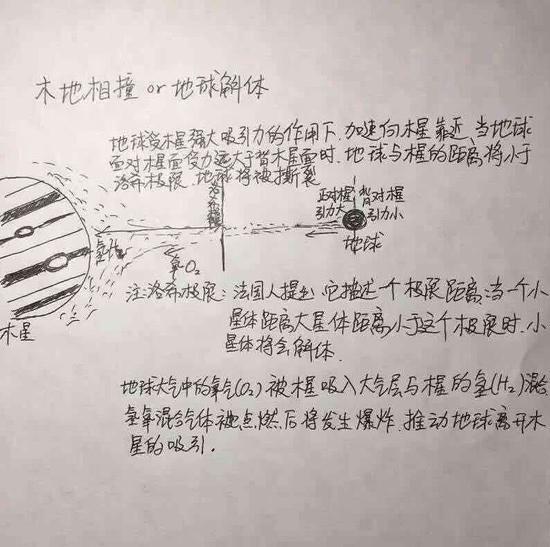 木地相撞 or 地球解体
地球受木星强大吸引力的作用下,加速向木星靠近,当地球
面对木星面受力远大于背木星面时,地球与木星的距离将小于
洛希极限,地球将被撕裂
洛希极限
正对木星 背对木星
引力大 引力小
地球
氢H₂
氧O₂
木星
注:洛希极限:法国人提出,它描述一个极限距离:当一个小
星体距离大星体距离小于这个极限时,小
星体将会解体.
地球大气中的氧气(O₂)被木星吸入大气层与木星的氢(H₂)混合
氢氧混合气体被点燃后将发生爆炸,推动地球离开木
星的吸引.